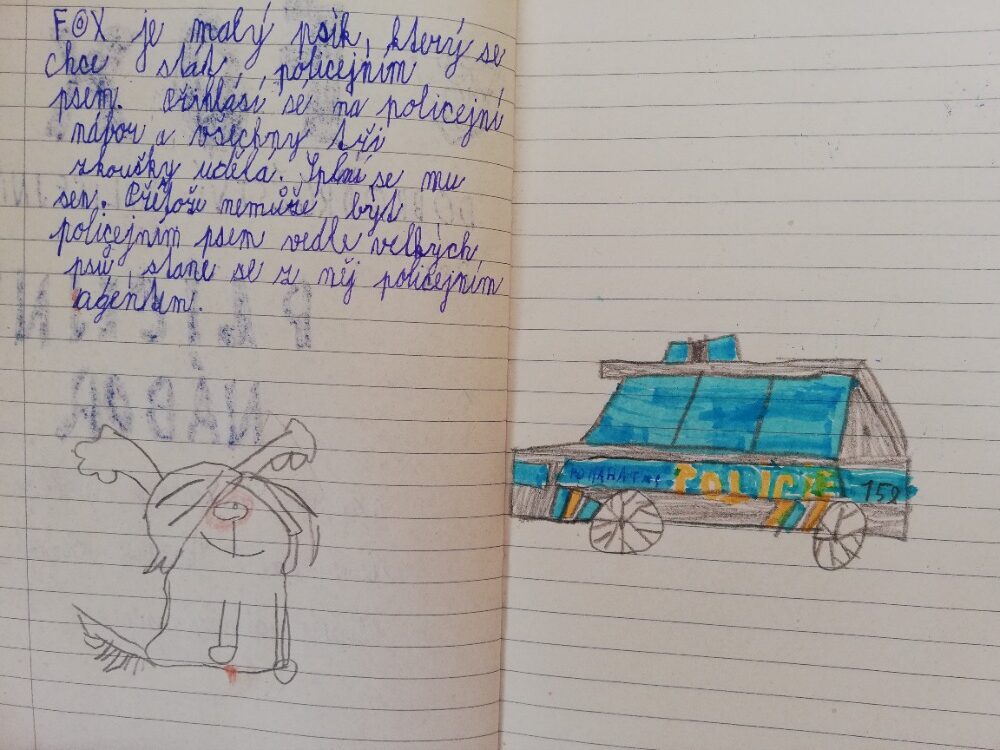 FOX je malý psík, který se
chce stát policejním
psem. Přihlásí se na policejní
nábor a všechny tři
zkoušky udělá. Splní se mu
sen. Přitože nemůže být
policejním psem vedle velkých
psů, stane se z něj policejním
agentem.
POMÁHAT A
POLICIE
158